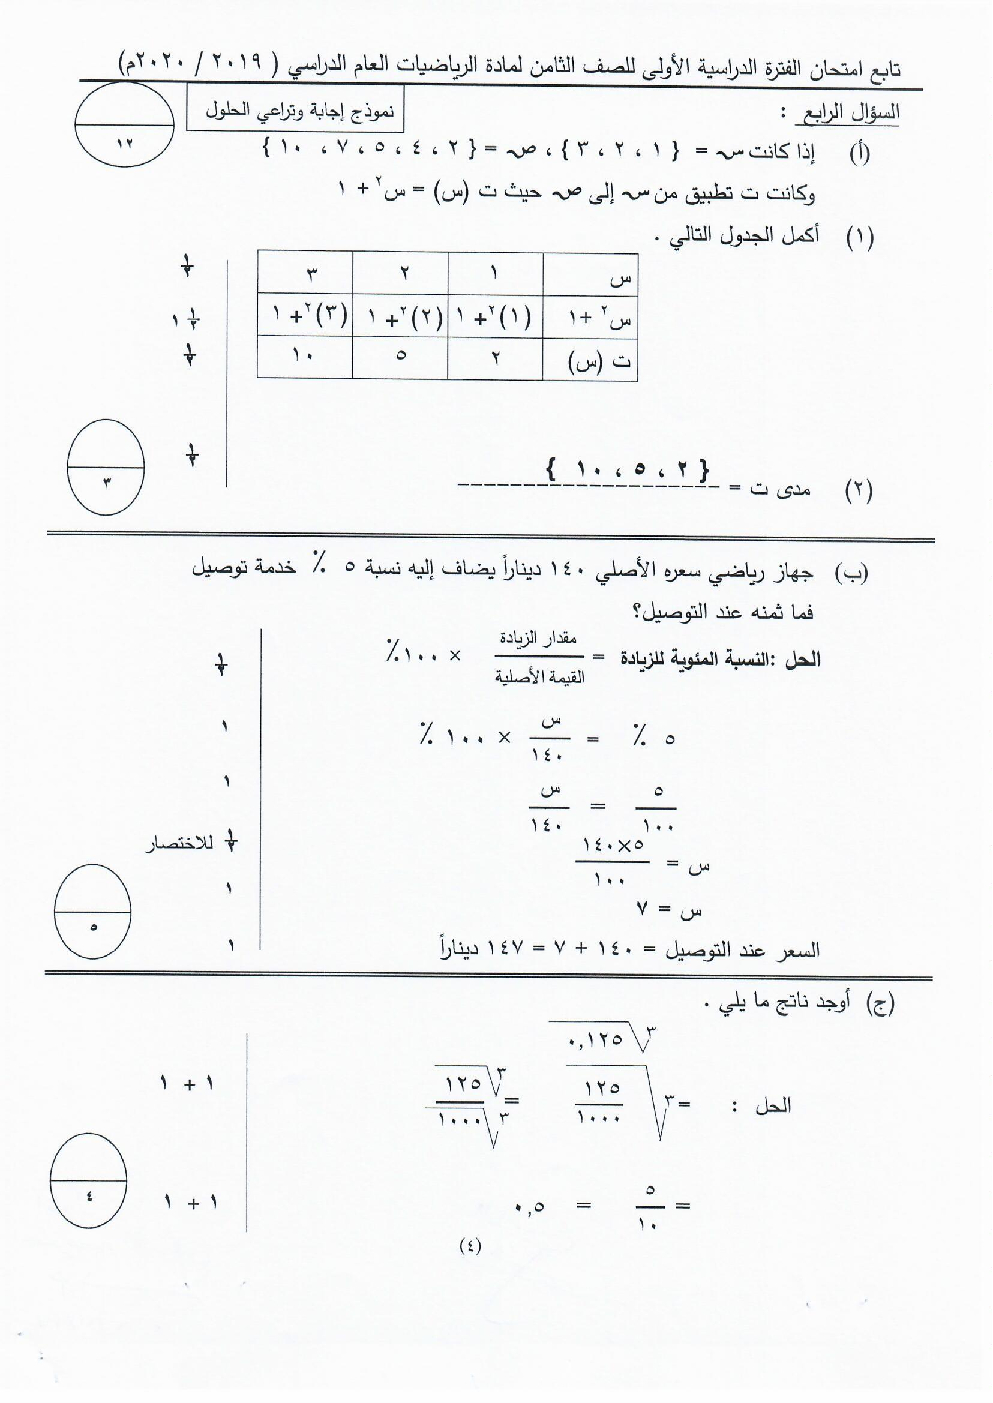 تابع امتحان الفترة الدراسية الأولى للصف الثامن لمادة الرياضيات العام الدراسي ( ٢٠١٩ / ٢٠٢٠م)
السؤال الرابع :
نموذج إجابة وتراعي الحلول
١٢
(أ) إذا كانت س = { ١ ، ٢ ، ٣ } ، ص = { ٢ ، ٤ ، ٥ ، ٧ ، ١٠ }
وكانت ت تطبيق من س إلى ص حيث ت (س) = س٢ + ١
(١) أكمل الجدول التالي .
س ١ ٢ ٣ ١/٢
س٢ +١ (١)٢+ ١ (٢)٢+ ١ (٣)٢+ ١ ١ ١/٢
ت (س) ٢ ٥ ١٠ ١/٢
(٢) مدى ت = { ٢ ، ٥ ، ١٠ } ١/٢
٣
(ب) جهاز رياضي سعره الأصلي ١٤٠ ديناراً يضاف إليه نسبة ٥ ٪ خدمة توصيل
فما ثمنه عند التوصيل؟
الحل :النسبة المئوية للزيادة = مقدار الزيادة / القيمة الأصلية × ١٠٠٪ ١/٢
٥ ٪ = س / ١٤٠ × ١٠٠ ٪ ١
٥ / ١٠٠ = س / ١٤٠ ١
س = ٥×١٤٠ / ١٠٠ ١/٢ للاختصار
س = ٧ ١
السعر عند التوصيل = ١٤٠ + ٧ = ١٤٧ ديناراً ١
٥
(ج) أوجد ناتج ما يلي .
٣√٠,١٢٥
الحل : = ٣√١٢٥ / ١٠٠٠ = ٣√١٢٥ / ٣√١٠٠٠ ١ + ١
= ٥ / ١٠ = ٠,٥ ١ + ١
٤
(٤)